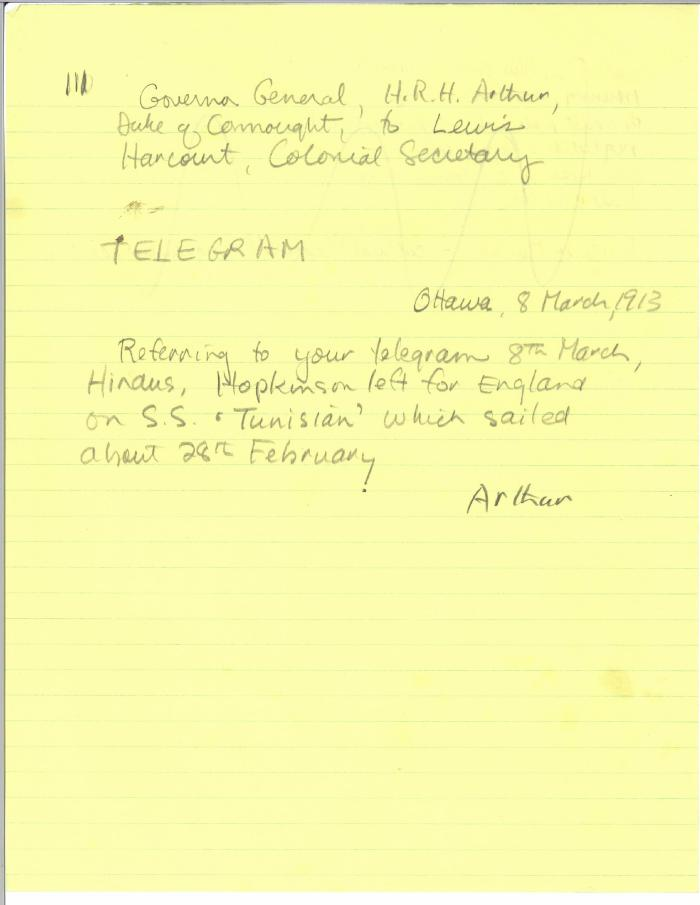 111
Governor General, H.R.H. Arthur,
Duke of Connought, to Lewis
Harcourt, Colonial Secretary
TELEGRAM
Ottawa, 8 March, 1913
Referring to your telegram 8th March,
Hindus, Hopkinson left for England
on S.S. 'Tunisian' which sailed
about 28th February.
Arthur